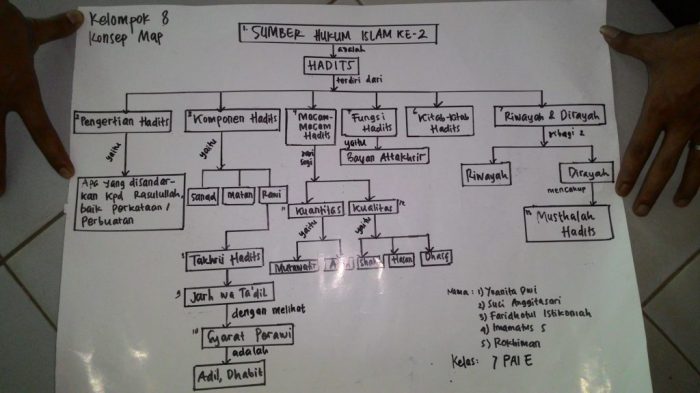 Kelompok 8
Konsep Map
1. SUMBER HUKUM ISLAM KE-2
adalah
HADITS
terdiri dari
2 Pengertian Hadits
3 Komponen Hadits
4 Macam-
Macam
Hadits
5 Fungsi
Hadits
6 Kitab-kitab
Hadits
7 Riwayah & Dirayah
yaitu
yaitu
dari
segi
yaitu
dibagi 2
Bayan Attakhrir
Riwayah
Dirayah
mencakup
Apa yang disandar-
kan Kpd Rasulullah,
baik perkataan /
Perbuatan
sanad
matan
Rawi
Kuantitas
Kualitas
12
yaitu
yaitu
Musthalah
Hadits
Takhrij Hadits
Mutawatir
Hasan
Dhaif
9
Jarh wa Ta'dil
dengan melihat
10
Syarat Perawi
adalah
Adil, Dhabit
Nama: 1) Yuanita Dwi
2) Suci Anggitasari
3) Faridhotul Istikomah
4) Imamatus S
5) Rokhiman
Kelas: 7 PAI E